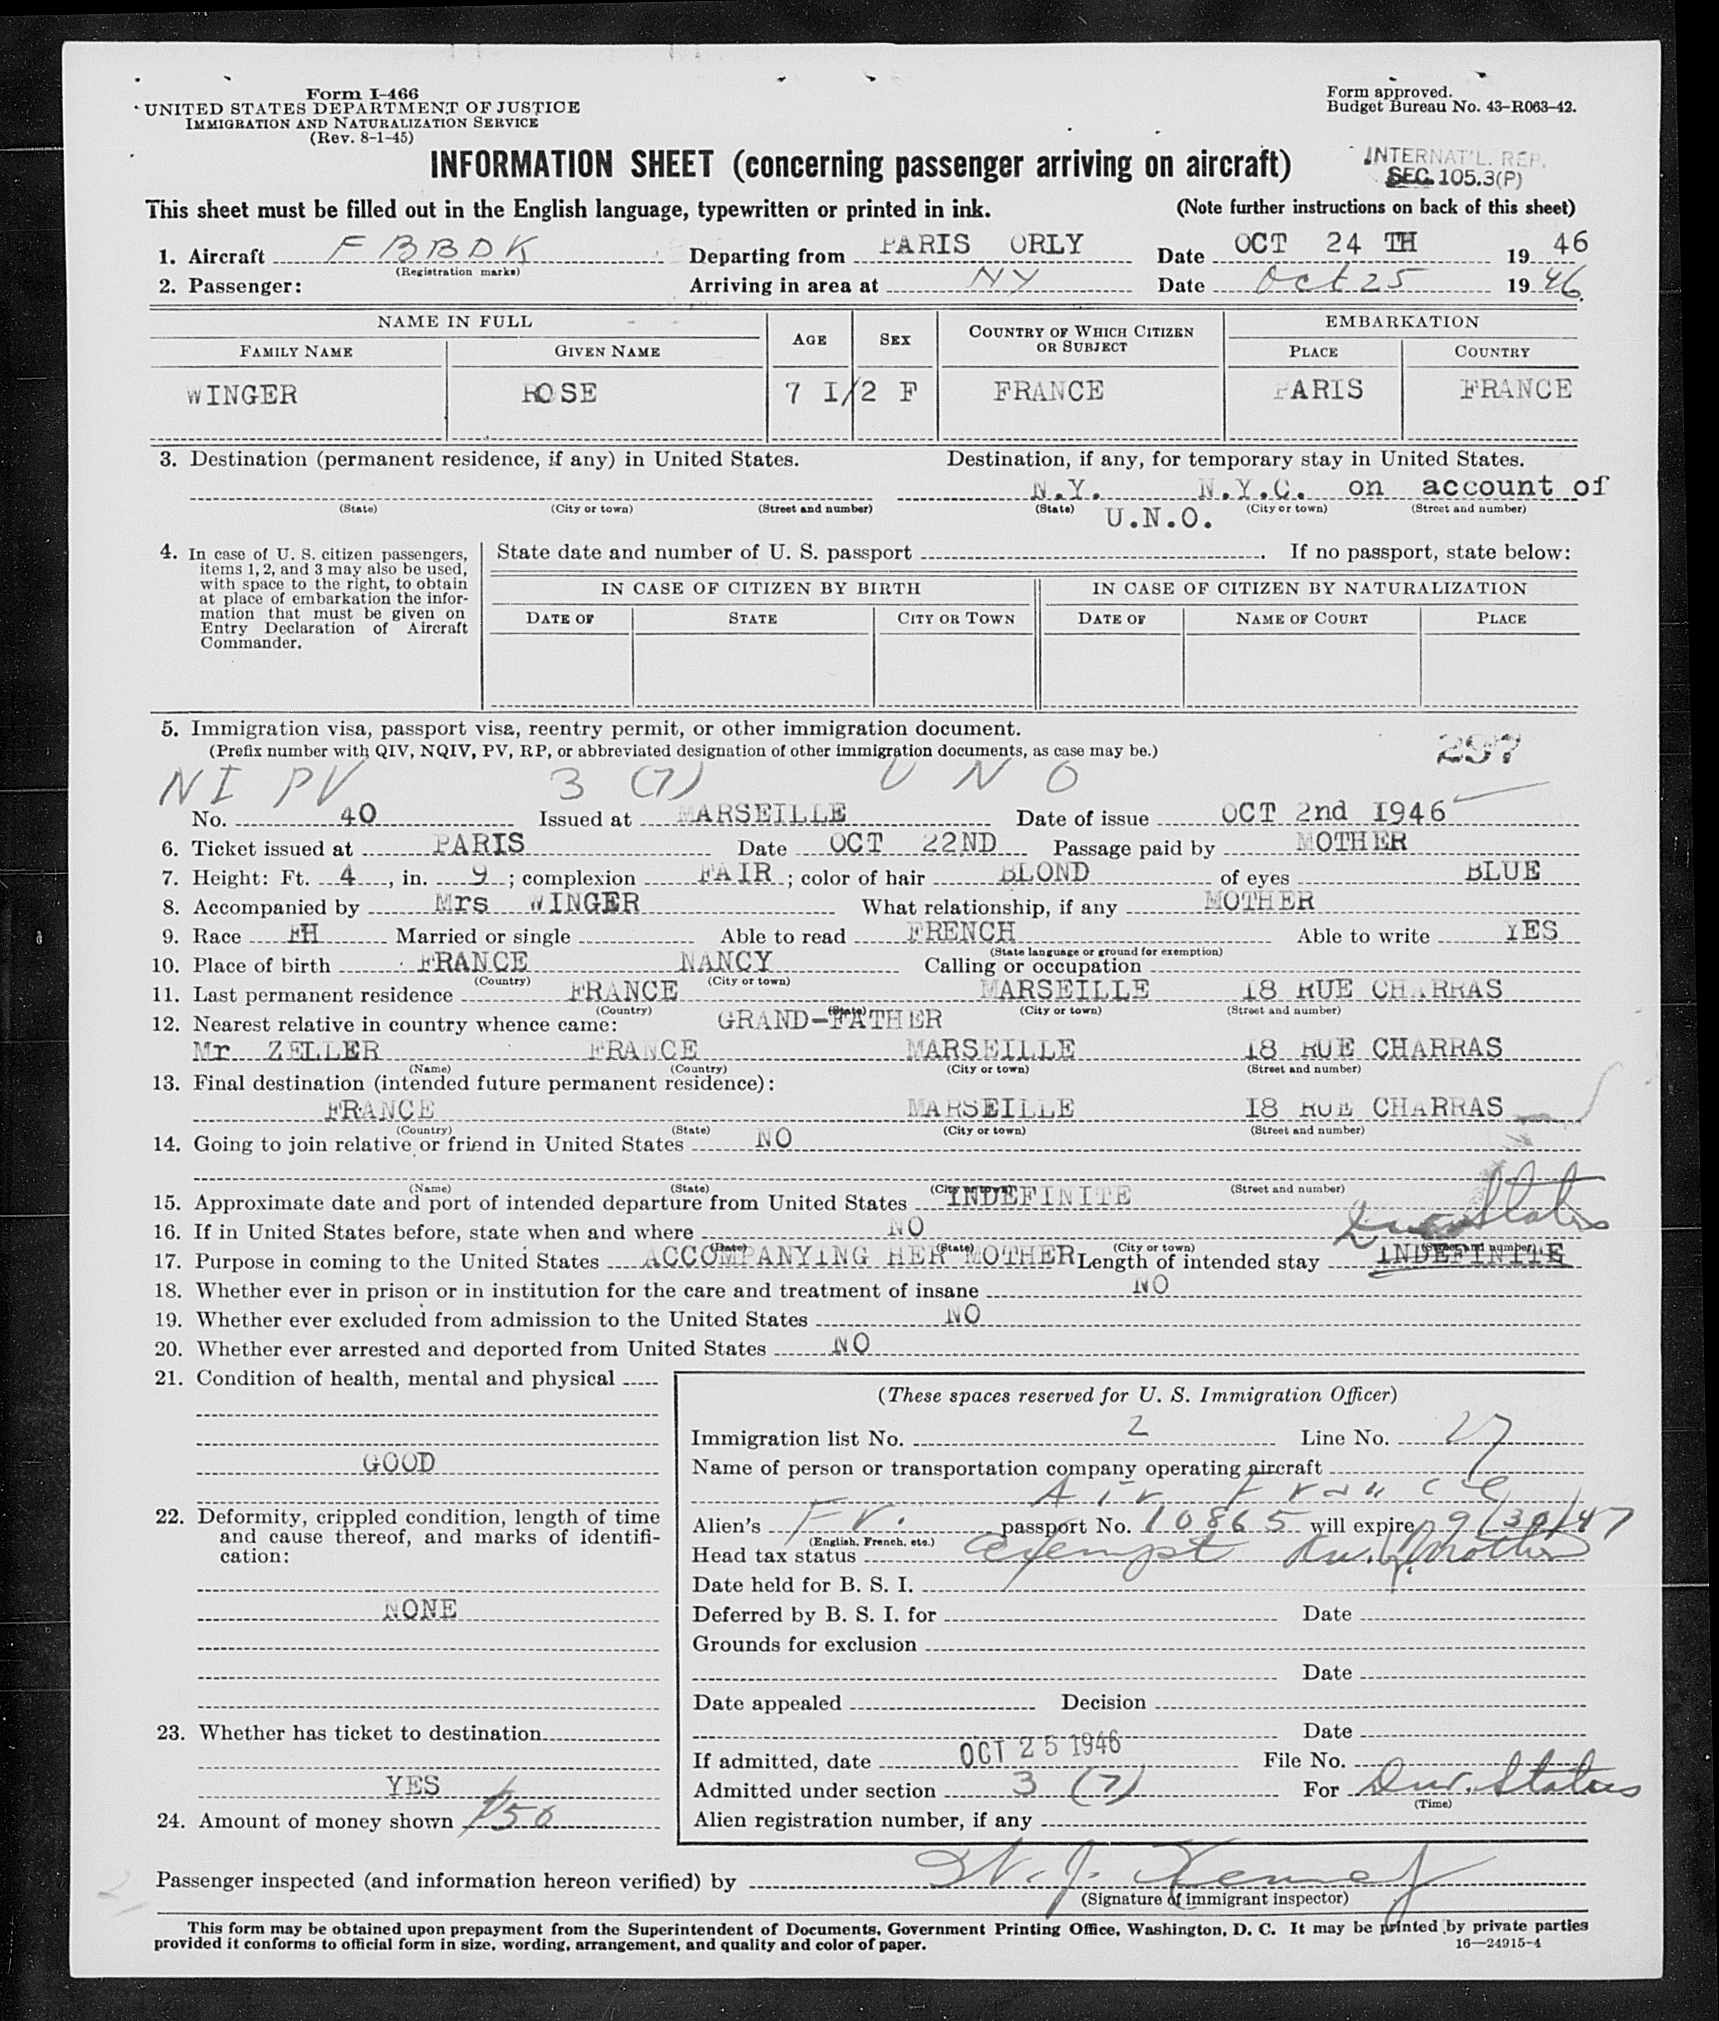 Form I-466
UNITED STATES DEPARTMENT OF JUSTICE
IMMIGRATION AND NATURALIZATION SERVICE
(Rev. 8-1-45)
Form approved.
Budget Bureau No. 43-R063-42.
INFORMATION SHEET (concerning passenger arriving on aircraft)
INTERNAT'L. REP.
SEC. 105.3(P)
This sheet must be filled out in the English language, typewritten or printed in ink. (Note further instructions on back of this sheet)
1. Aircraft F BBDK Departing from PARIS ORLY Date OCT 24 TH 19 46
(Registration marks)
2. Passenger: Arriving in area at NY Date Oct 25 19 46
NAME IN FULL AGE SEX COUNTRY OF WHICH CITIZEN OR SUBJECT EMBARKATION
FAMILY NAME GIVEN NAME PLACE COUNTRY
WINGER ROSE 7 I/2 F FRANCE PARIS FRANCE
3. Destination (permanent residence, if any) in United States. Destination, if any, for temporary stay in United States.
N.Y. N.Y.C. on account of
(State) (City or town) (Street and number) (State) (City or town) (Street and number)
U.N.O.
4. In case of U. S. citizen passengers, items 1, 2, and 3 may also be used, with space to the right, to obtain at place of embarkation the information that must be given on Entry Declaration of Aircraft Commander.
State date and number of U. S. passport . If no passport, state below:
IN CASE OF CITIZEN BY BIRTH IN CASE OF CITIZEN BY NATURALIZATION
DATE OF STATE CITY OR TOWN DATE OF NAME OF COURT PLACE
5. Immigration visa, passport visa, reentry permit, or other immigration document.
(Prefix number with QIV, NQIV, PV, RP, or abbreviated designation of other immigration documents, as case may be.)
297
NI PV 3 (7) U N O
No. 40 Issued at MARSEILLE Date of issue OCT 2nd 1946
6. Ticket issued at PARIS Date OCT 22ND Passage paid by MOTHER
7. Height: Ft. 4, in. 9; complexion FAIR; color of hair BLOND of eyes BLUE
8. Accompanied by Mrs WINGER What relationship, if any MOTHER
9. Race FH Married or single Able to read FRENCH Able to write YES
(State language or ground for exemption)
10. Place of birth FRANCE NANCY Calling or occupation
(Country) (City or town)
11. Last permanent residence FRANCE MARSEILLE 18 RUE CHARRAS
(Country) (State) (City or town) (Street and number)
12. Nearest relative in country whence came: GRAND-FATHER
Mr ZELLER FRANCE MARSEILLE 18 RUE CHARRAS
(Name) (Country) (City or town) (Street and number)
13. Final destination (intended future permanent residence):
FRANCE MARSEILLE I8 RUE CHARRAS
(Country) (State) (City or town) (Street and number)
14. Going to join relative or friend in United States NO
(Name) (State) (City or town) (Street and number)
15. Approximate date and port of intended departure from United States INDEFINITE
16. If in United States before, state when and where NO
Status
(Date) (State) (City or town) (Street and number)
17. Purpose in coming to the United States ACCOMPANYING HER MOTHER Length of intended stay INDEFINITE
18. Whether ever in prison or in institution for the care and treatment of insane NO
19. Whether ever excluded from admission to the United States NO
20. Whether ever arrested and deported from United States NO
21. Condition of health, mental and physical
GOOD
22. Deformity, crippled condition, length of time and cause thereof, and marks of identification:
NONE
23. Whether has ticket to destination
YES
24. Amount of money shown $50
(These spaces reserved for U. S. Immigration Officer)
Immigration list No. 2 Line No. 27
Name of person or transportation company operating aircraft
Air France
Alien's Fr. passport No. 10865 will expire 9/30/47
(English, French, etc.)
Head tax status exempt Mother
Date held for B. S. I.
Deferred by B. S. I. for Date
Grounds for exclusion
Date
Date appealed Decision
Date
If admitted, date OCT 25 1946 File No.
Admitted under section 3 (7) For Dur. Status
(Time)
Alien registration number, if any
Passenger inspected (and information hereon verified) by
(Signature of immigrant inspector)
This form may be obtained upon prepayment from the Superintendent of Documents, Government Printing Office, Washington, D. C. It may be printed by private parties
provided it conforms to official form in size, wording, arrangement, and quality and color of paper.
16—24915-4